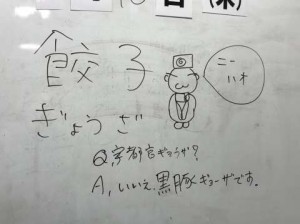 日(木)
餃子
ニー
ハオ
ぎょうざ
Q,宇都宮ギョウザ?
A,いいえ黒豚ギョーザです。